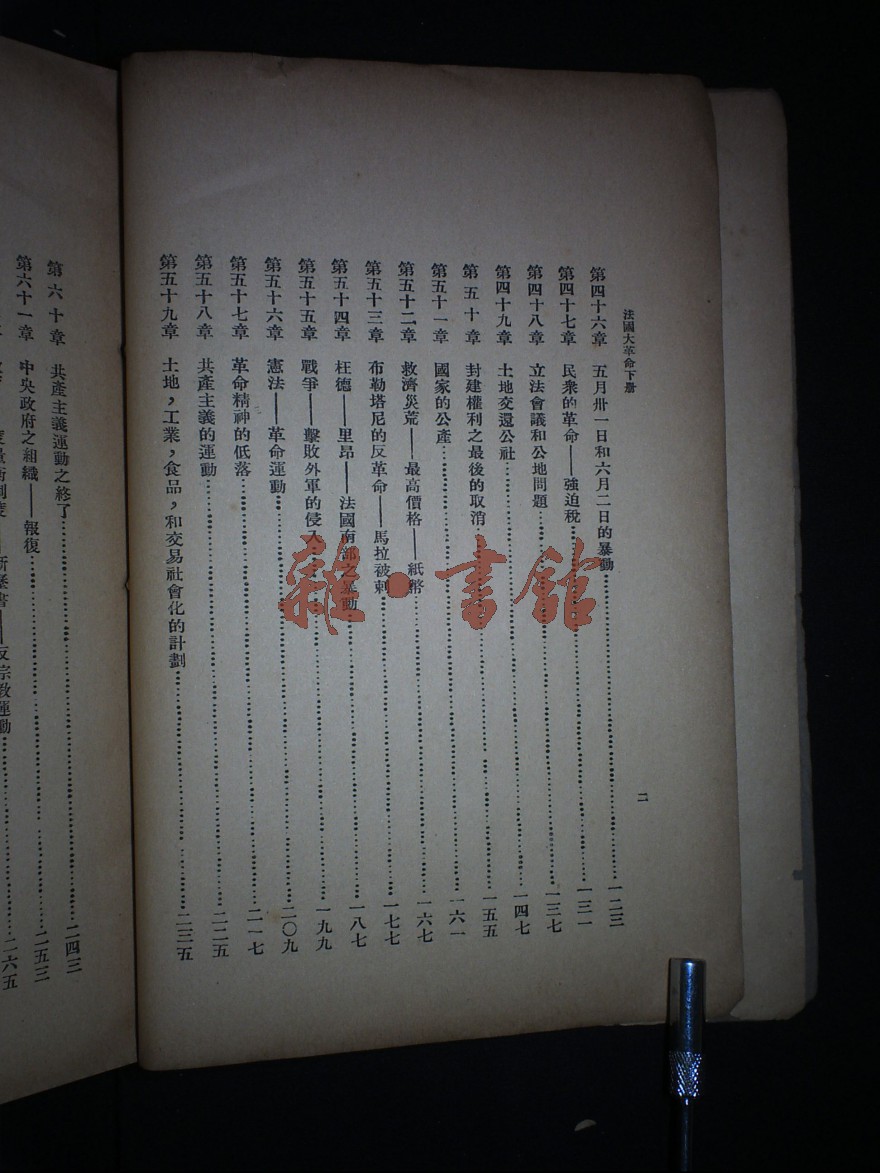 法國大革命下册
二
第四十六章 五月卅一日和六月二日的暴動……一二三
第四十七章 民衆的革命——強迫税……一三一
第四十八章 立法會議和公地問題……一三七
第四十九章 土地交還公社……一四七
第五十章 封建權利之最後的取消……一五五
第五十一章 國家的公產……一六一
第五十二章 救濟災荒——最高價格——紙幣……一六七
第五十三章 布勒塔尼的反革命——馬拉被刺……一七七
第五十四章 枉德——里昂——法國南部之暴動……一八七
第五十五章 戰爭——擊敗外軍的侵入……一九九
第五十六章 憲法——革命運動……二〇九
第五十七章 革命精神的低落……二一七
第五十八章 共產主義的運動……二二五
第五十九章 土地，工業，食品，和交易社會化的計劃……二三五
第六十章 共產主義運動之終了……二四三
第六十一章 中央政府之組織——報復……二五三
度量衡制度——新曆書——反宗教運動……二六五
雜·書館